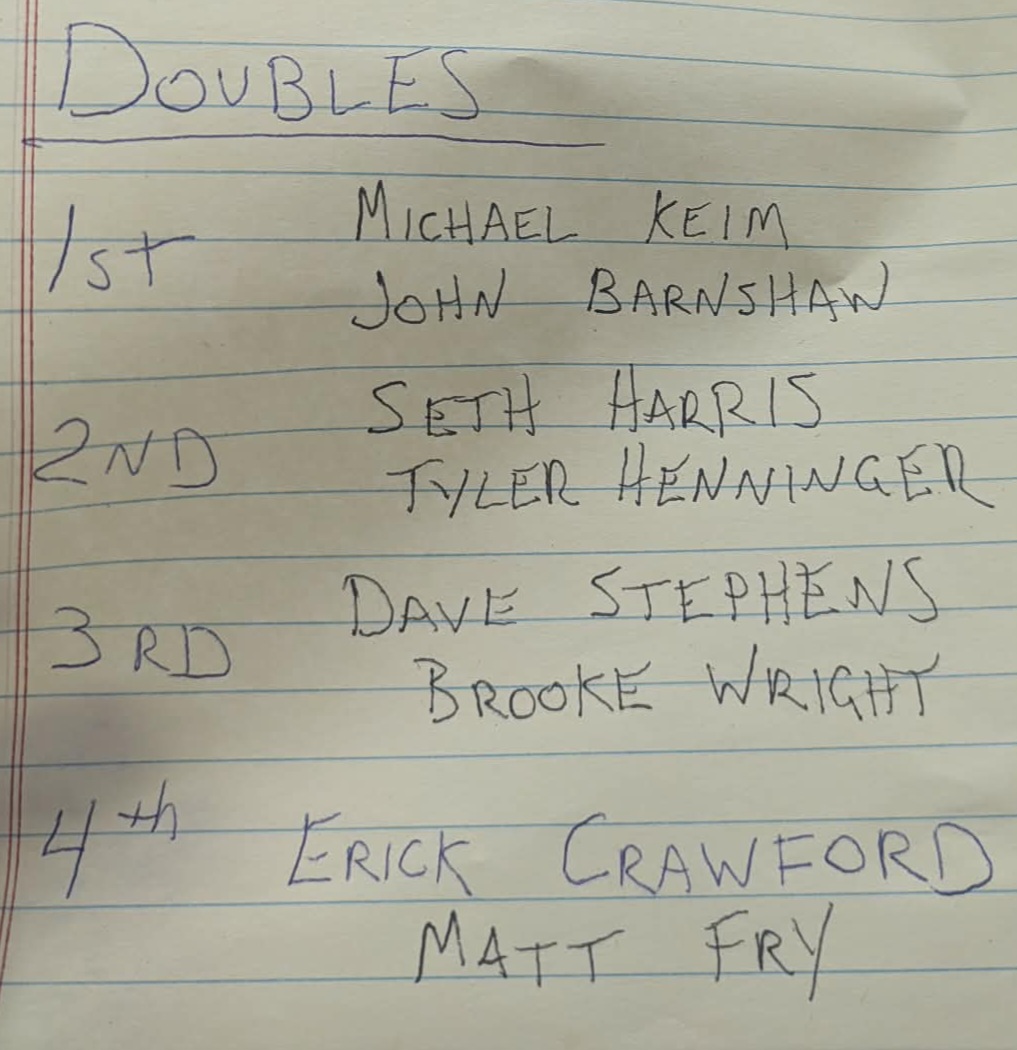 DOUBLES
1ST MICHAEL KEIM
JOHN BARNSHAW
2ND SETH HARRIS
TYLER HENNINGER
3RD DAVE STEPHENS
BROOKE WRIGHT
4th ERICK CRAWFORD
MATT FRY